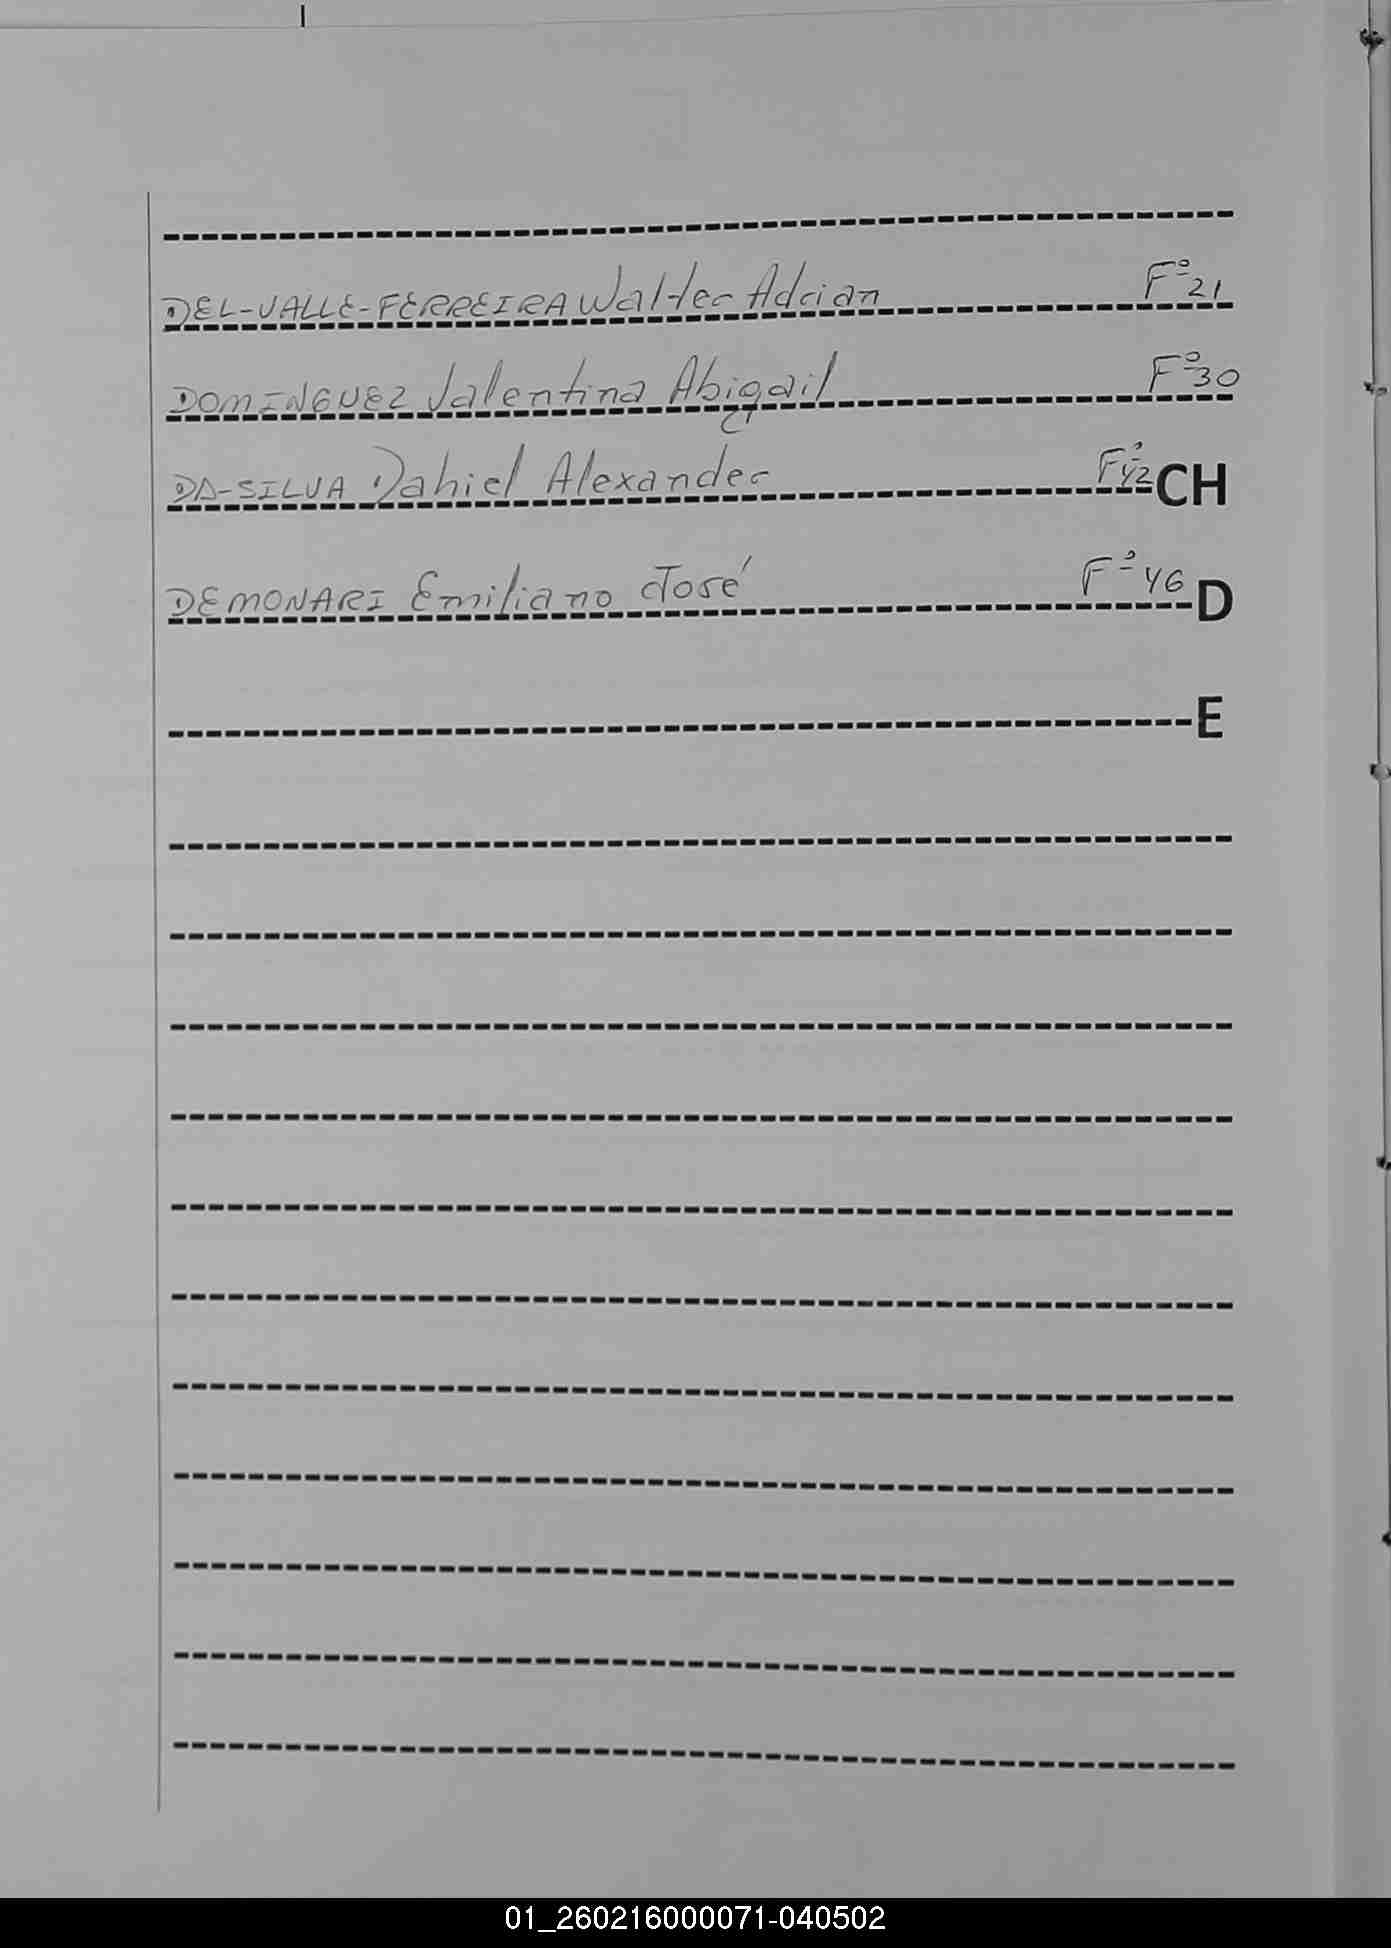 DEL-VALLE-FERREIRA Walter Adrian Fº 21
DOMINGUEZ Valentina Abigail Fº 30
DA-SILVA Dahiel Alexander Fº 42 CH
DEMONARI Emiliano José Fº 46 D
E
01_260216000071-040502